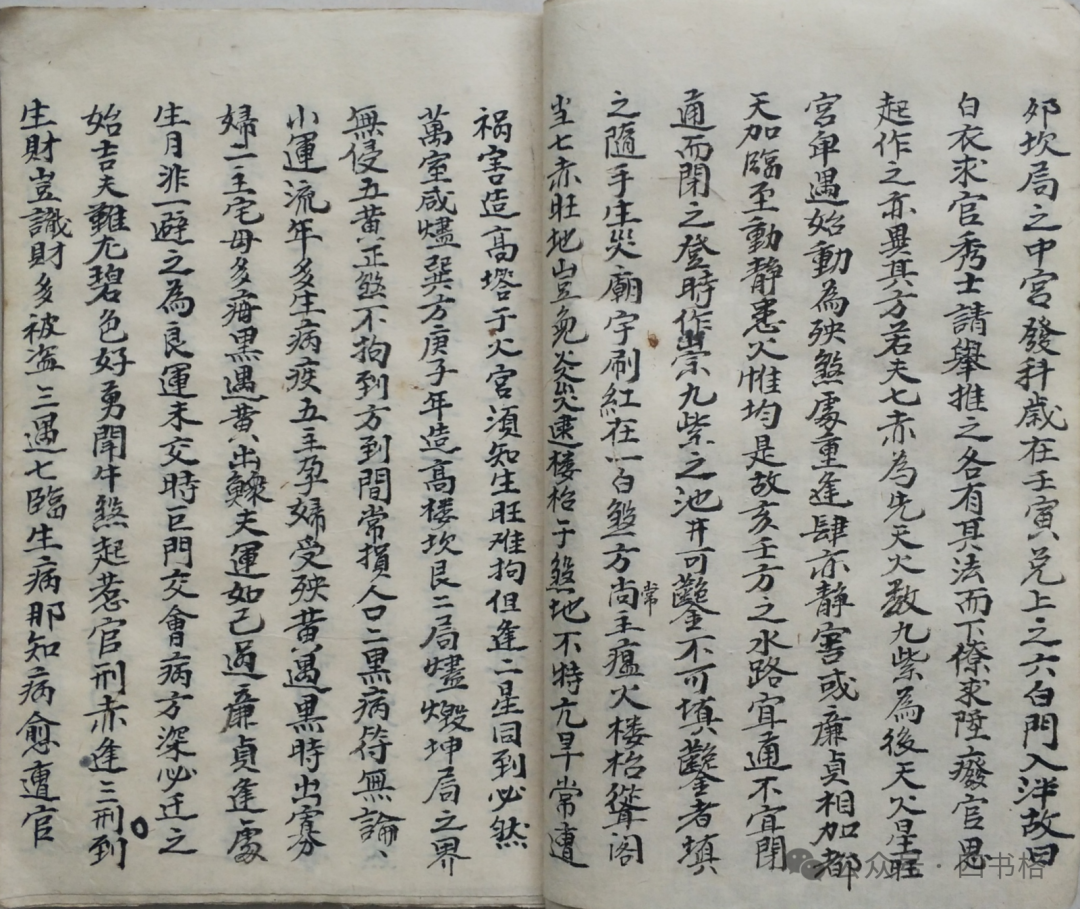 郊坎局之中宮發科歲在壬寅兌上之六白門入泮故曰
白衣求官秀士請舉推之各有其法而下僚求陞癈官思
起作之亦異其方若夫七赤為先天火数九紫為後天火星旺
宮單遇始動為殃煞處重逢肆亦静害或廉貞相加都
天加臨至動静患火惟均是故亥壬方之水路宜通不宜閉
通而閉之登時作祟九紫之池井可鑿不可填鑿者填
之隨手生災廟宇刷紅在一白煞方尚常主瘟火楼枱聳閣
当七赤旺地豈免炎災建楼枱于煞地不特亢旱常遭
禍害造高塔于火宮須知生旺难拘但逢二星同到必然
萬室咸燼巽方庚子年造高楼坎艮二局燼燬坤局之界
無侵五黄正煞不拘到方到間常損人口二黒病符無論
小運流年多生病疾五主孕婦受殃黄遇黒時出寡
婦二主宅母多痗黒遇黄出鰥夫運如已過廉貞逢處
生月非一避之為良運未交時巨門交會病方深必迁之
始吉夫雖尤碧色好勇鬥牛煞起惹官刑赤逢三刑到
生財豈識財多被盗三遇七臨生病那知病愈遭官
众号·四书格